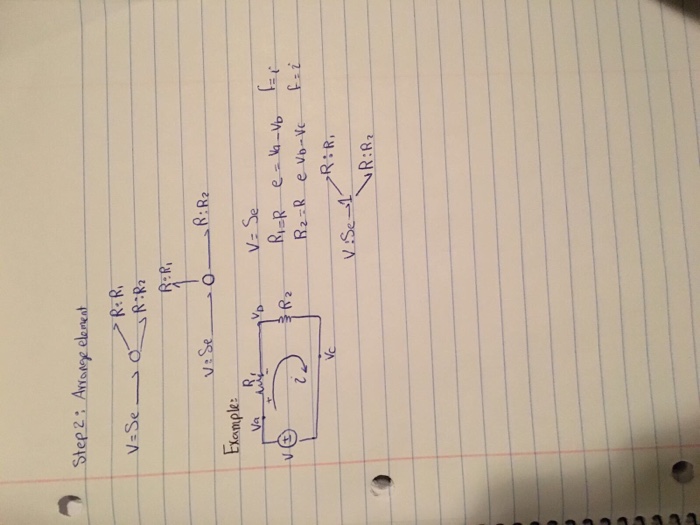 Step 2: Arrange element
R:R1
V=Se → O
R:R2
R:R1
V=Se → O → R:R2
Example:
V = Se
R1=R e = Va-Vb f=i
R2=R e Vb-Vc f=i
Va R1 Vb
+ -
V i R2
Vc
R:R1
V:Se → 1
R:R2